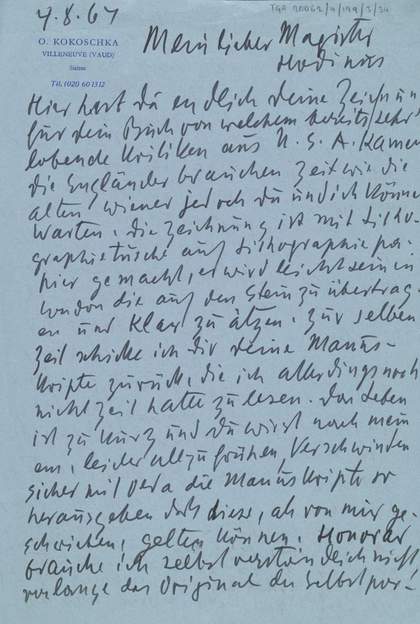 TGA 20062/4/144/2/34
4.8.67
O. KOKOSCHKA
VILLENEUVE (VAUD)
Suisse
Tél. (020) 60 13 12
Mein lieber Magister
Hodinus
Hier hast du endlich deine Zeichnung
für dein Buch von welchem bereits sehr
lobende Kritiken aus U.S.A. kamen
die Engländer brauchen Zeit wie die
alten Wiener jedoch du und ich können
warten. die Zeichnung ist mit Litho-
graphietusche auf Lithographiepa-
pier gemacht, es wird leicht sein in
London die auf den Stein zu übertrag-
en und klar zu ätzen. Zur selben
Zeit schicke ich dir deine Manus-
kripte zurück, die ich allerdings noch
nicht Zeit hatte zu lesen. Das Leben
ist zu kurz und du wirst nach mein
em, leider allzu frühen, Verschwinden
sicher mit Vera die Manuskripte so
herausgeben daß diese, als von mir ge-
schrieben, gelten können. Honorar
brauche ich selbstverständlich nicht,
verlange das Original des Selbstpor-